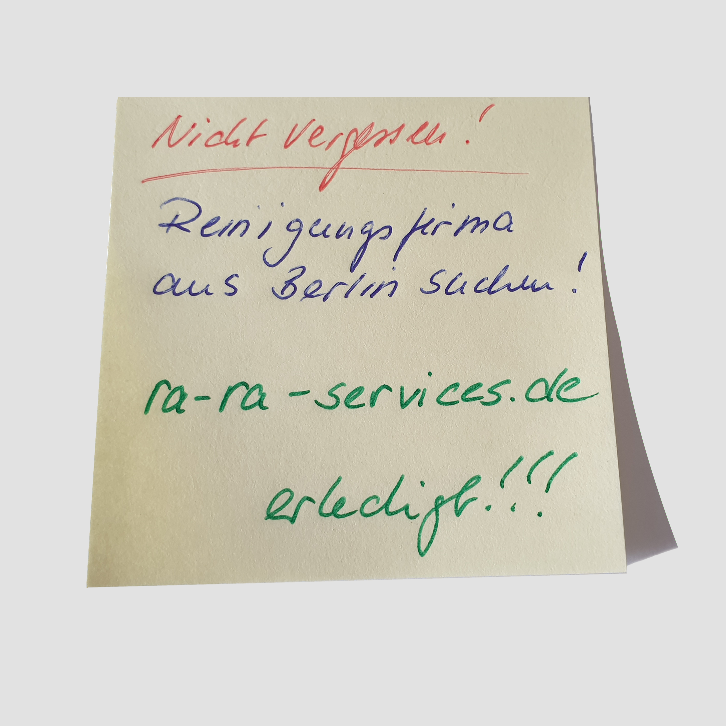 Nicht vergessen!
Reinigungsfirma
aus Berlin suchen!
ra-ra-services.de
erledigt!!!